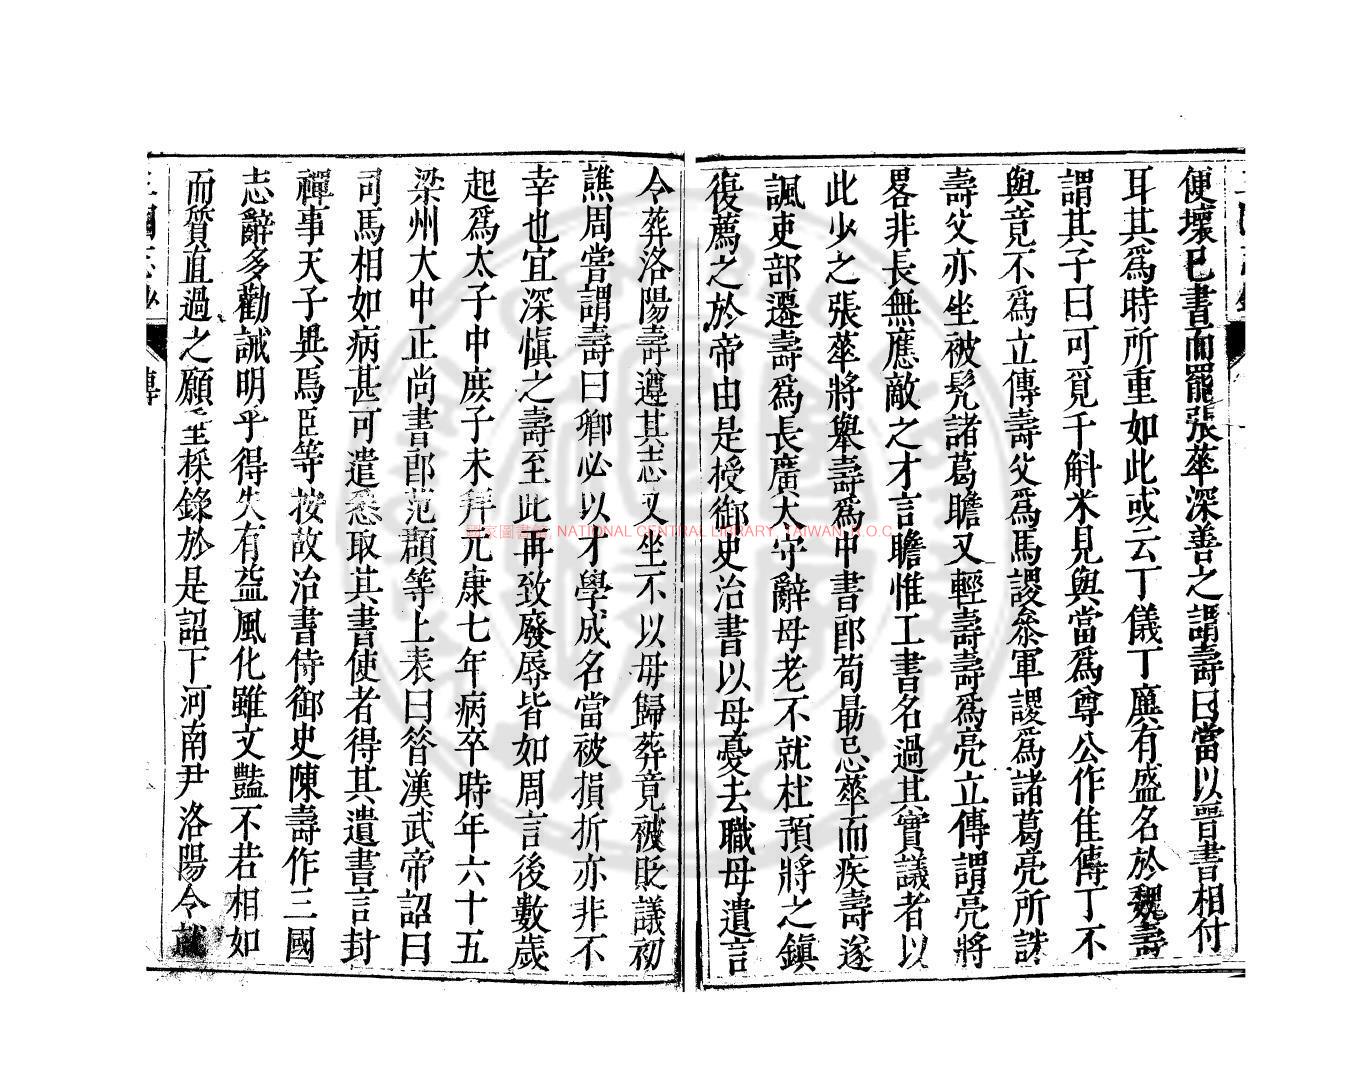 便壞已書而罷張華深善之謂壽曰當以晉書相付
耳其爲時所重如此或云丁儀丁廙有盛名於魏壽
謂其子曰可覓千斛米見與當爲尊公作佳傳丁不
與竟不爲立傳壽父爲馬謖叅軍謖爲諸葛亮所誅
壽父亦坐被髡諸葛瞻又輕壽壽爲亮立傳謂亮將
畧非長無應敵之才言瞻惟工書名過其實議者以
此少之張華將舉壽爲中書郎荀朂忌華而疾壽遂
諷吏部遷壽爲長廣太守辭母老不就杜預將之鎮
復薦之於帝由是授御史治書以母憂去職母遺言
令葬洛陽壽遵其志又坐不以母歸葬竟被貶議初
譙周嘗謂壽曰卿必以才學成名當被損折亦非不
幸也宜深慎之壽至此再致廢辱皆如周言後數歲
起爲太子中庶子未拜元康七年病卒時年六十五
梁州大中正尚書郎范頵等上表曰昝漢武帝詔曰
司馬相如病甚可遣悉取其書使者得其遺書言封
禪事天子異焉臣等按故治書侍御史陳壽作三國
志辭多勸誡明乎得失有益風化雖文豔不若相如
而質直過之願垂採錄於是詔下河南尹洛陽令就
國家圖書館, NATIONAL CENTRAL LIBRARY, TAIWAN, R.O.C.